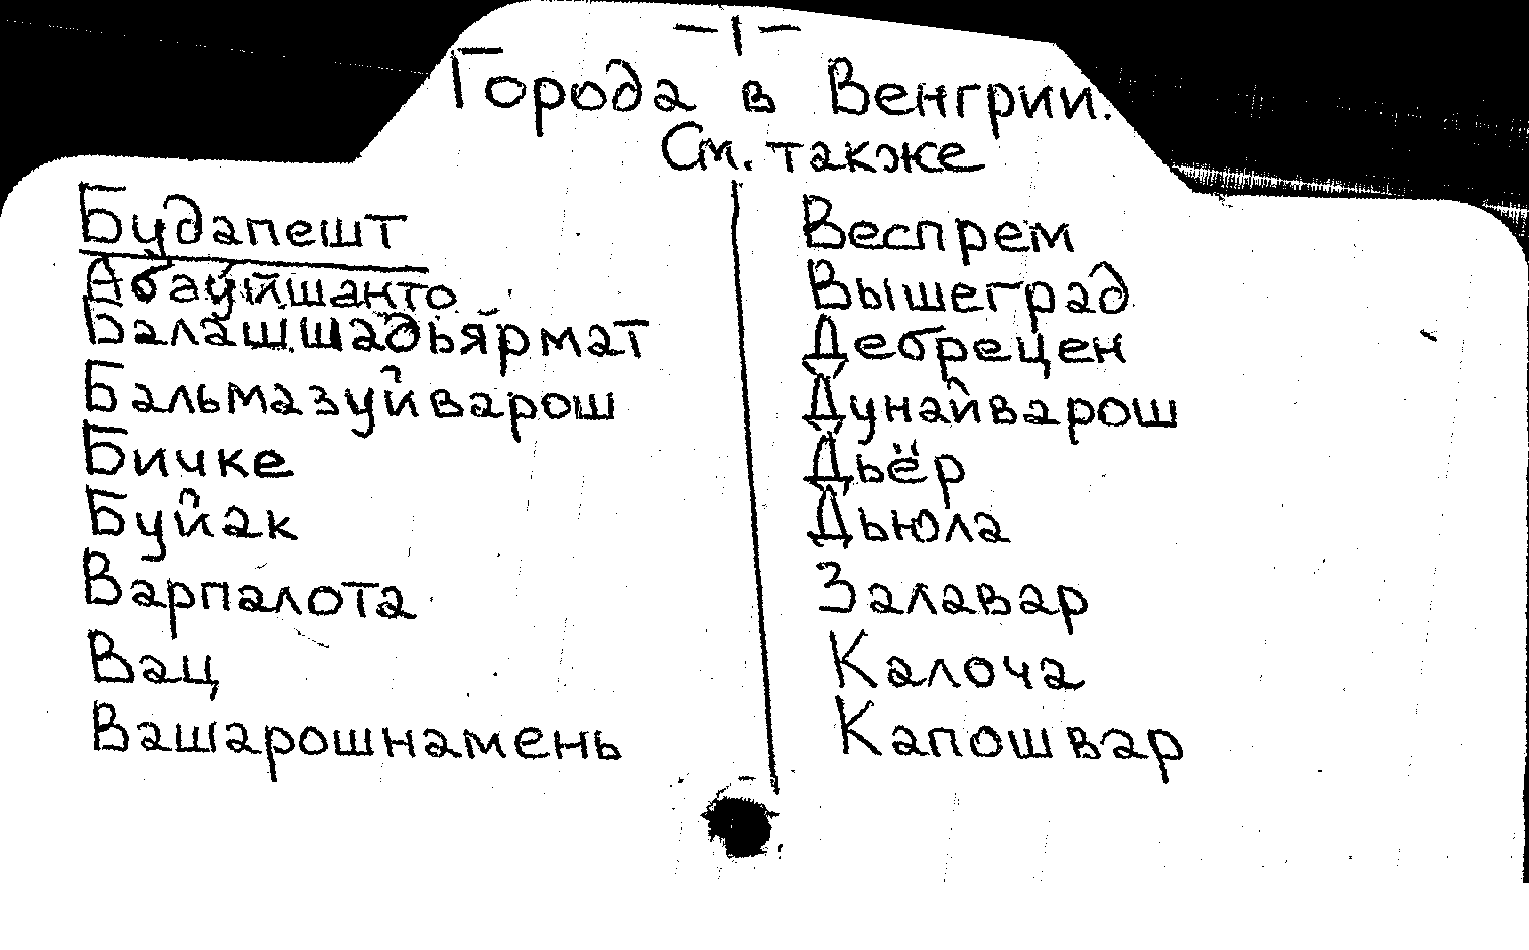 -1-
Города в Венгрии.
См. также
Будапешт
Абауйшанто
Балашшадьярмат
Бальмазуйварош
Бичке
Буйак
Варпалота
Вац
Вашарошнамень
Веспрем
Вышеград
Дебрецен
Дунайварош
Дьёр
Дьюла
Залавар
Калоча
Капошвар